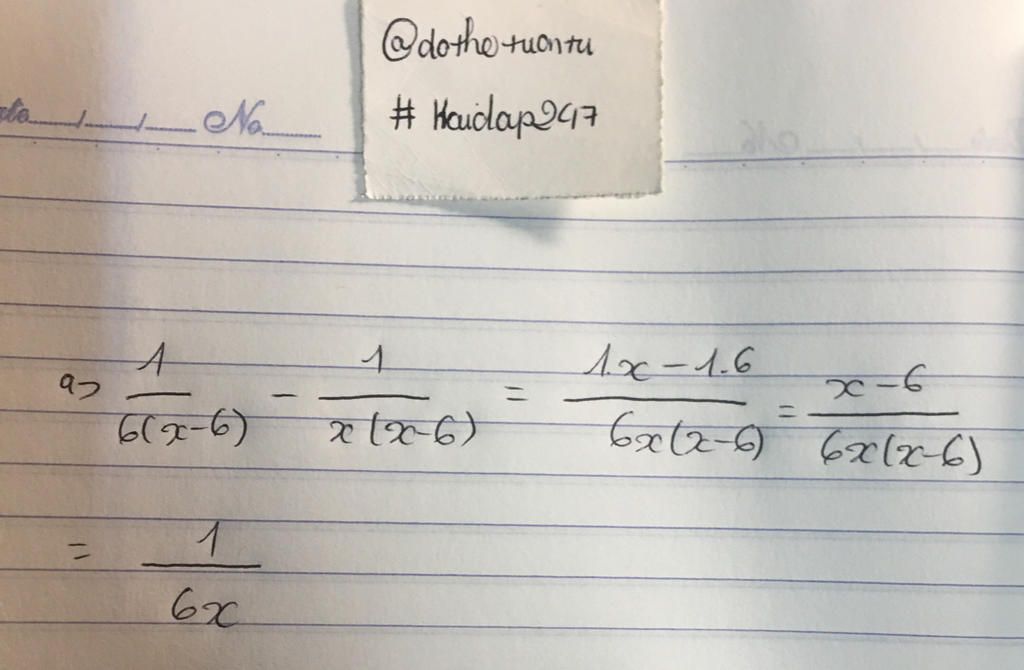 @dothetuantu
# Hoidap247
No
a> 1/6(x-6) - 1/x(x-6) = 1.x-1.6/6x(x-6) = x-6/6x(x-6)
= 1/6x